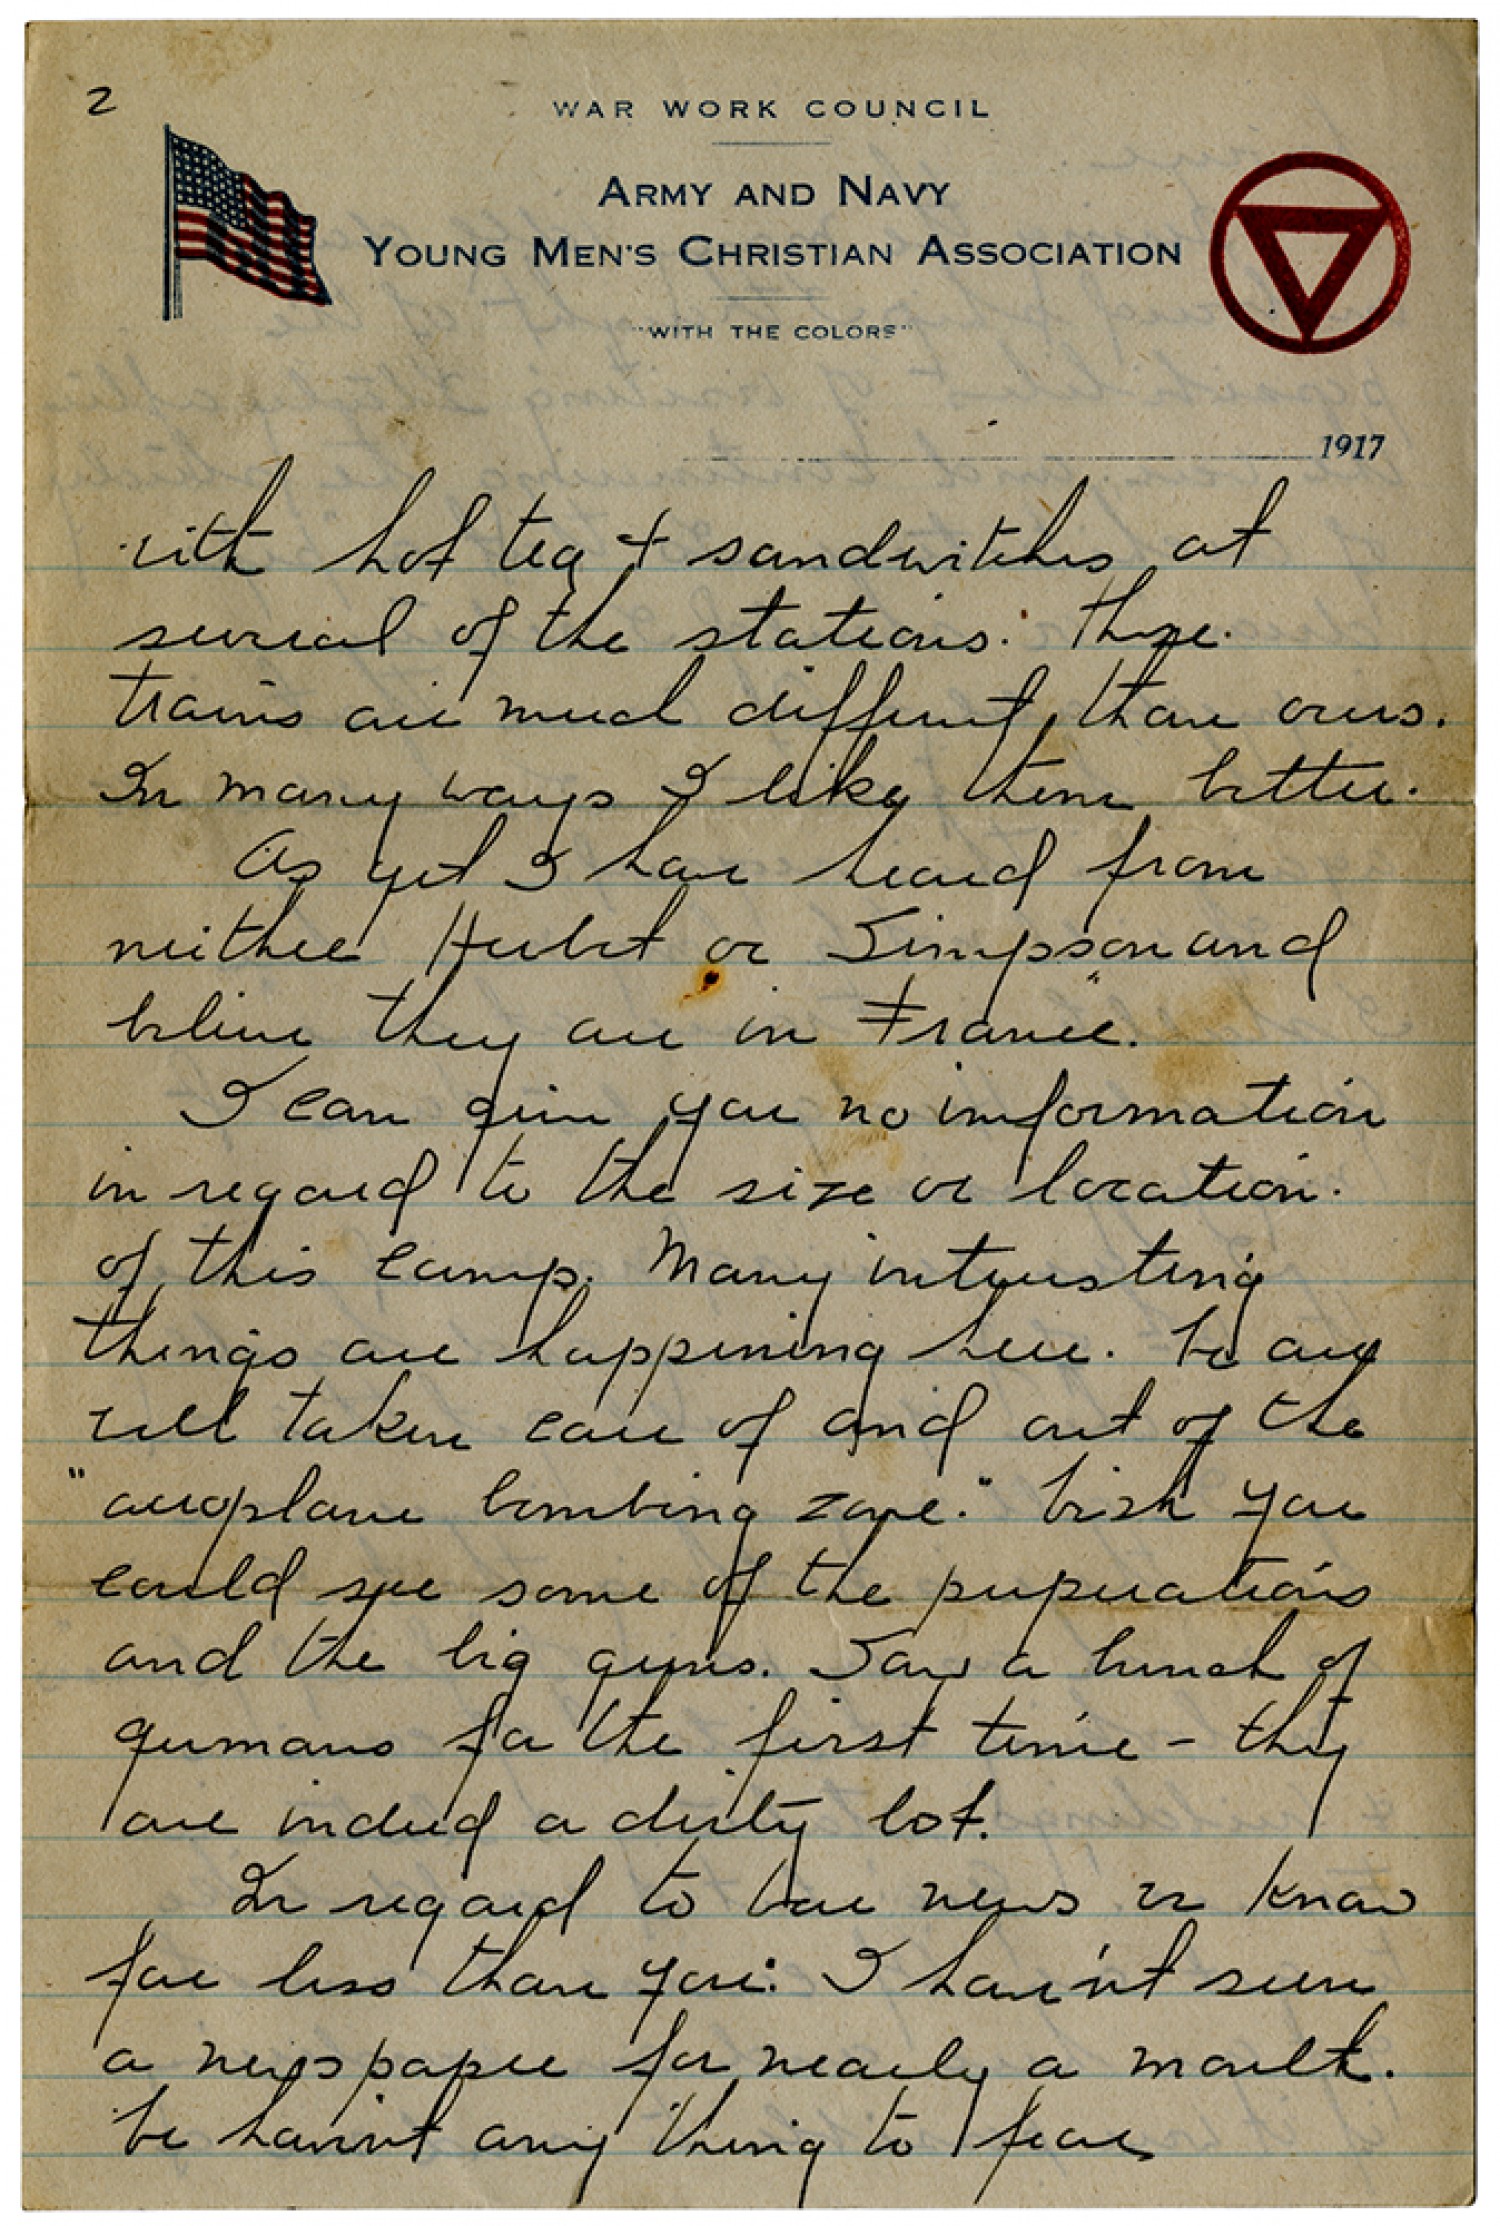 2
WAR WORK COUNCIL
ARMY AND NAVY
YOUNG MEN'S CHRISTIAN ASSOCIATION
"WITH THE COLORS"
1917
with hot tea + sandwitches at
several of the stations. These
trains are much different than ours.
In many ways I like them better.
As yet I have heard from
neither Hubert or Simpson and
believe they are in France.
I can give you no information
in regard to the size or location
of this camp. Many interesting
things are happening here. We are
well taken care of and out of the
"aeroplane bombing zone." Wish you
could see some of the preperations
and the big guns. Saw a bunch of
germans for the first time - they
are indeed a dirty lot.
In regard to war news we know
far less than you. I have'nt seen
a newspaper for nearly a month.
We have'nt any thing to fear